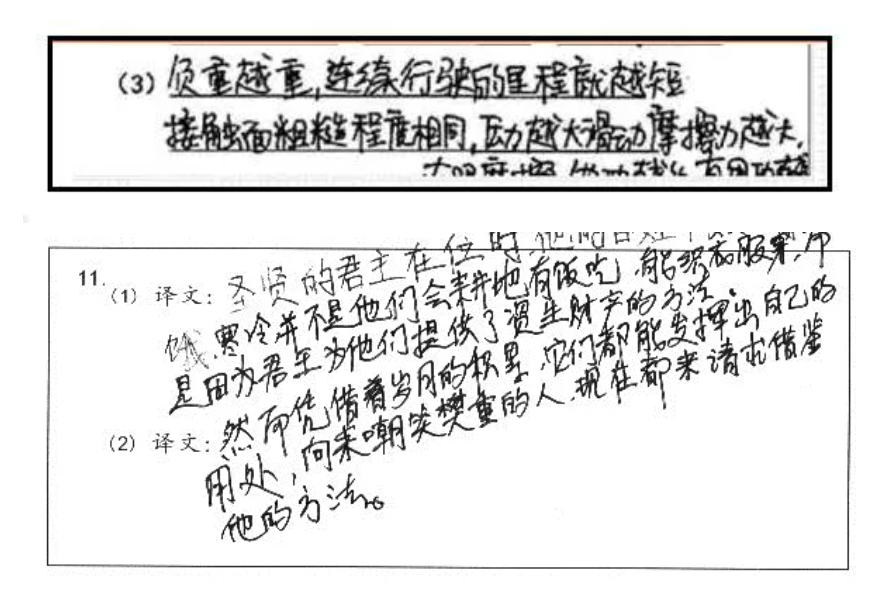 (3) 负重越重,连续行驶的里程就越短
接触面粗糙程度相同,压力越大滑动摩擦力越大,
11.
(1) 译文: 圣贤的君主在位时他的百姓不
饿寒冷并不是他们会耕地有饭吃,能织衣服穿,而
是因为君主为他们提供了资生财产的方法。
(2) 译文: 然而凭借着岁月的积累,它们都能发挥出自己的
用处,向来嘲笑樊重的人,现在都来请求借鉴
他的方法。